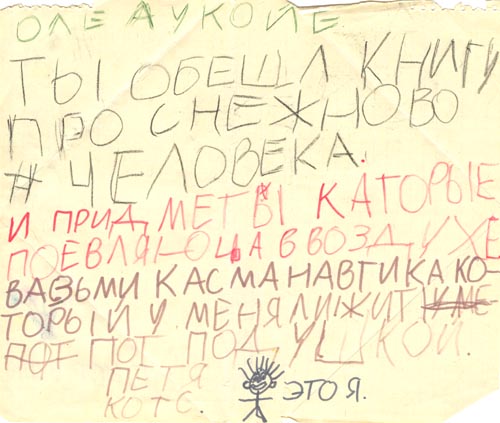 ОЛЕ ЛУКОЙЕ
ТЫ ОБЕЩЛ КНИГУ
ПРО СНЕЖНОВО
ЧЕЛОВЕКА.
И ПРИДМЕТЫ КАТОРЫЕ
ПОЕВЛЯЮЦА В ВОЗДУХЕ
ВАЗЬМИ КАСМАНАВТИКА КО-
ТОРЫЙ У МЕНЯ ЛИЖИТ
ПОТ ПОДУШКОЙ.
ПЕТЯ
КОТС. ЭТО Я.